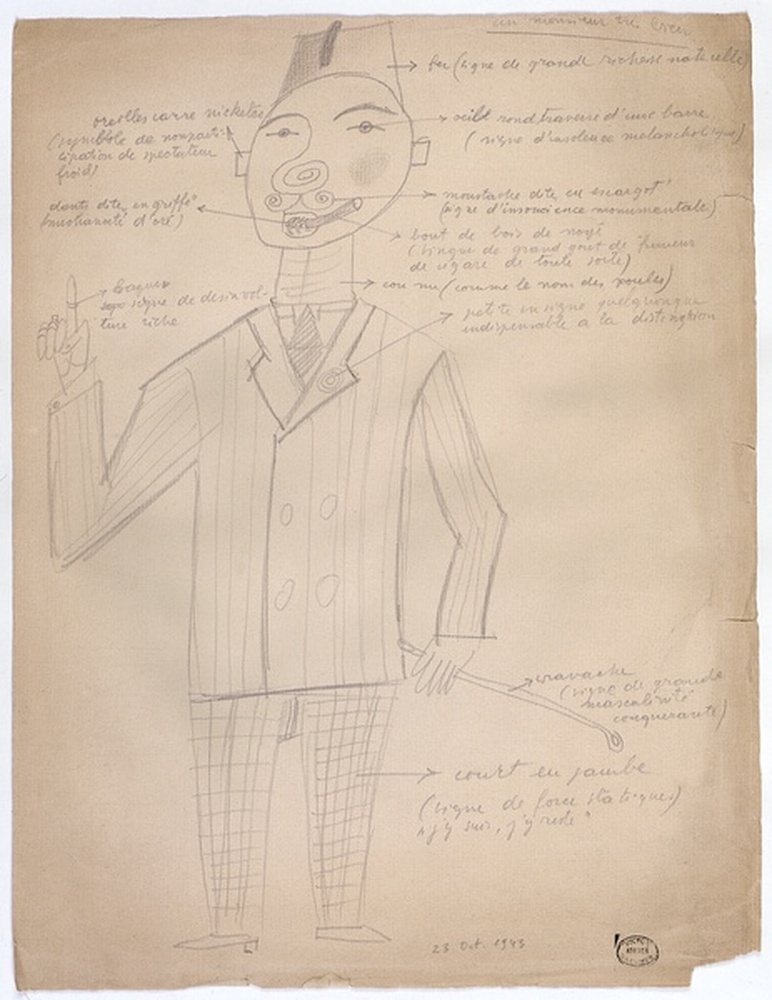 un monsieur très bien
fez (signe de grande richesse naturelle)
oreilles carré nickelée
(symbole de nonparti-
cipation de spectateur
froid)
oeild rond traversé d'une barre
(signe d'insolence melancholique)
dents dites en griffe
(méchanceté d'oré)
moustache dite en escargot
(signe d'insouciance monumentale)
bout de bois de noyé
(singne de grand gout de fumeur
de cigare de toute sorte)
cou nu (comme le nom des poules)
bague
signe de desinvol-
ture riche
petite ensigne quelquonque
indispensable a la distingtion
cravache
(signe de grande
masculinité
conquerante)
court en jambe
(signe de force statiques)
"j'y suis, j'y reste"
23. Oct. 1943